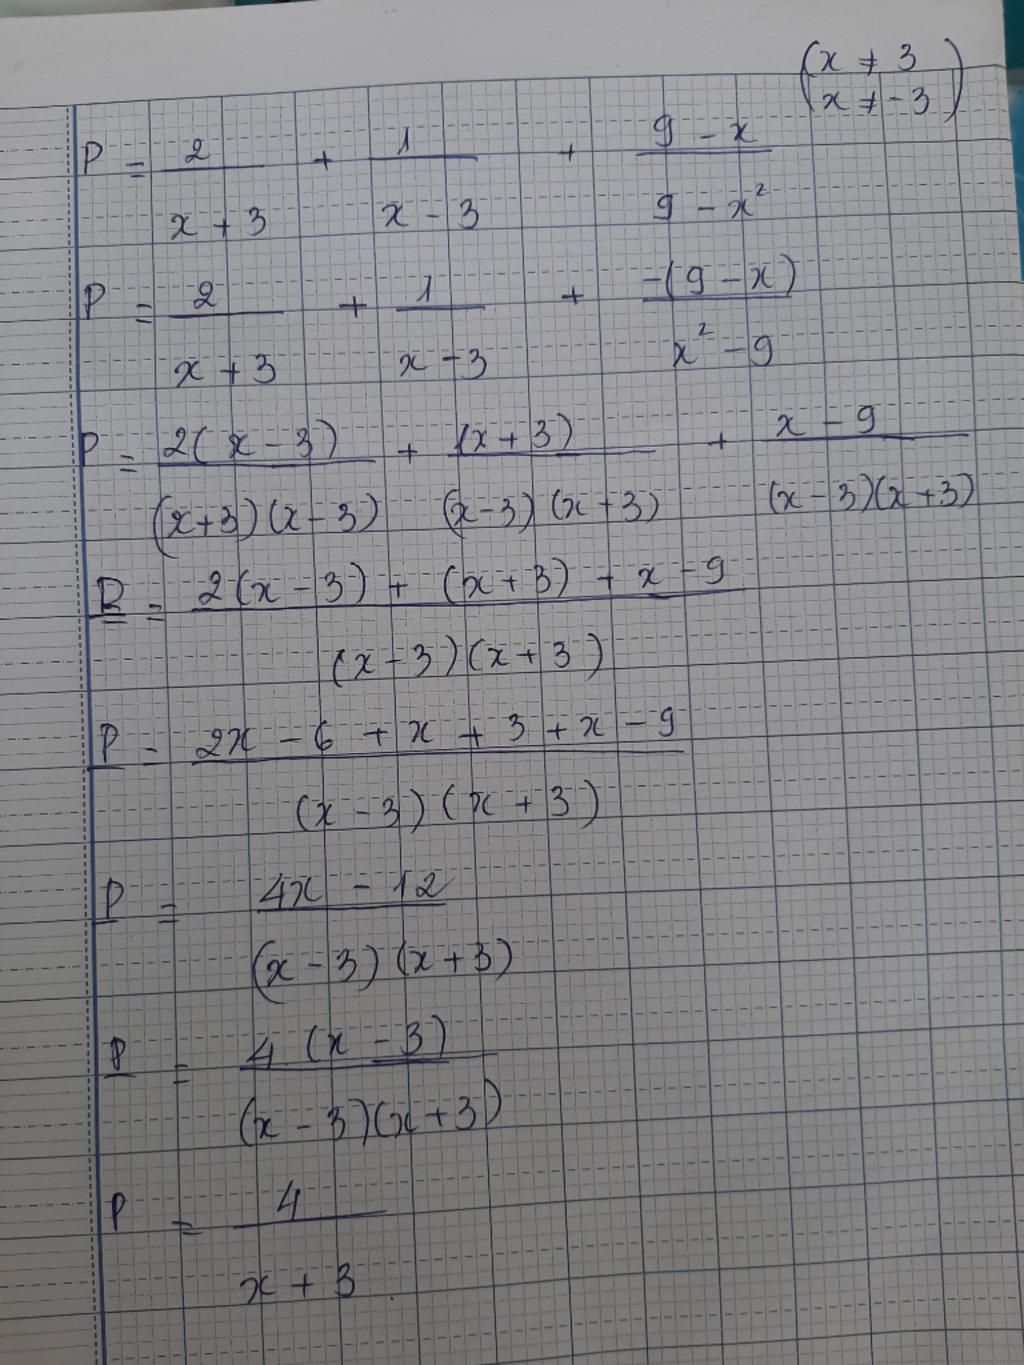 (x ≠ 3
x ≠ -3)
P = 2/(x + 3) + 1/(x - 3) + (9 - x)/(9 - x²)
P = 2/(x + 3) + 1/(x - 3) + -(9 - x)/(x² - 9)
P = 2(x - 3)/(x+3)(x-3) + (x+3)/(x-3)(x+3) + (x - 9)/(x-3)(x+3)
P = (2(x - 3) + (x+3) + x - 9)/(x - 3)(x + 3)
P = (2x - 6 + x + 3 + x - 9)/(x - 3)(x + 3)
P = (4x - 12)/(x - 3)(x+3)
P = 4(x - 3)/(x - 3)(x+3)
P = 4/(x + 3)